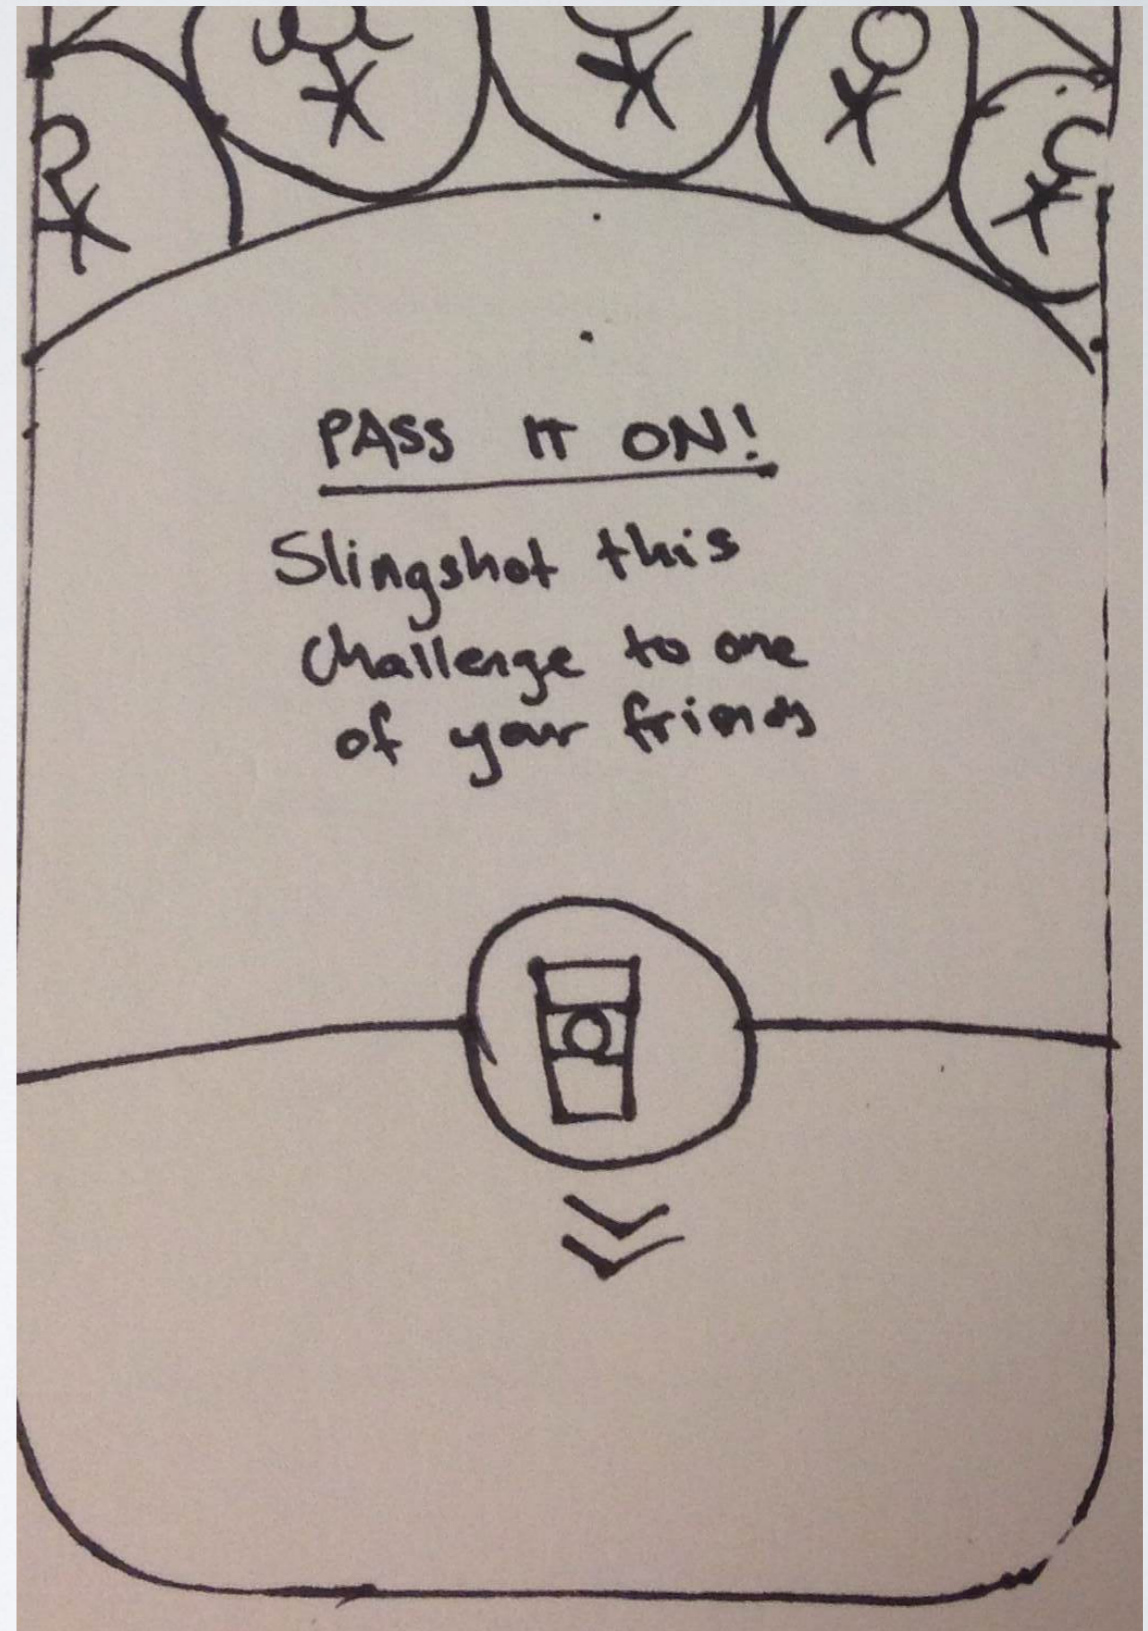 PASS IT ON!
Slingshot this
challenge to one
of your friends